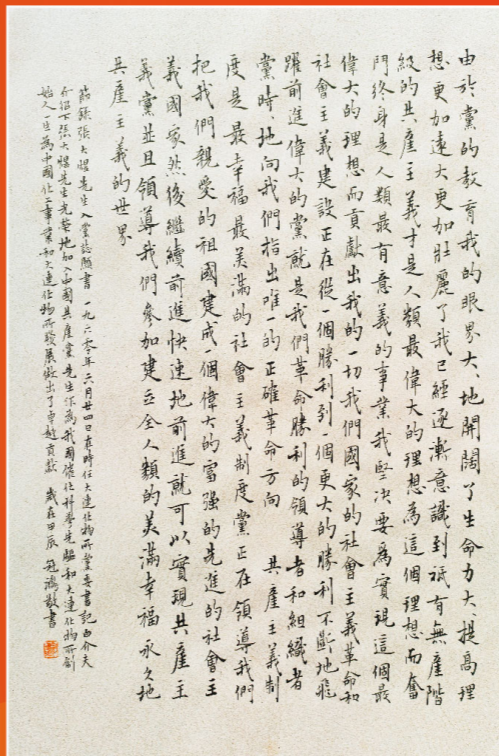 由於黨的教育我的眼界大大地開闊了生命力大大提高理
想更加遠大更加壯麗了我已經逐漸意識到祇有無產階
級的共產主義才是人類最偉大的理想為這個理想而奮
鬥終身是人類最有意義的事業我堅決要為實現這個最
偉大的理想而貢獻出我的一切我們國家的社會主義革命和
社會主義建設正在從一個勝利到一個更大的勝利不斷地飛
躍前進偉大的黨就是我們革命勝利的領導者和組織者
黨時時地向我們指出唯一的正確革命方向 共產主義制
度是最幸福最美滿的社會主義制度黨正在領導我們
把我們親愛的祖國建成一個偉大的富强的先進的社會主
義國家然後繼續前進快速地前進就可以實現共產主
義黨並且領導我們參加建立全人類的美滿幸福永久地
共產主義的世界
節錄張大煜先生入黨誌願書 一九六零年六月廿四日在時任大連化物所黨委書記白介夫
介紹下張大煜先生光榮地加入中國共產黨先生作為我國催化科學先驅和大連化物所創
始人一生為中國化工事業和大連化物所發展做出了卓越貢獻 歲在甲辰 敬書